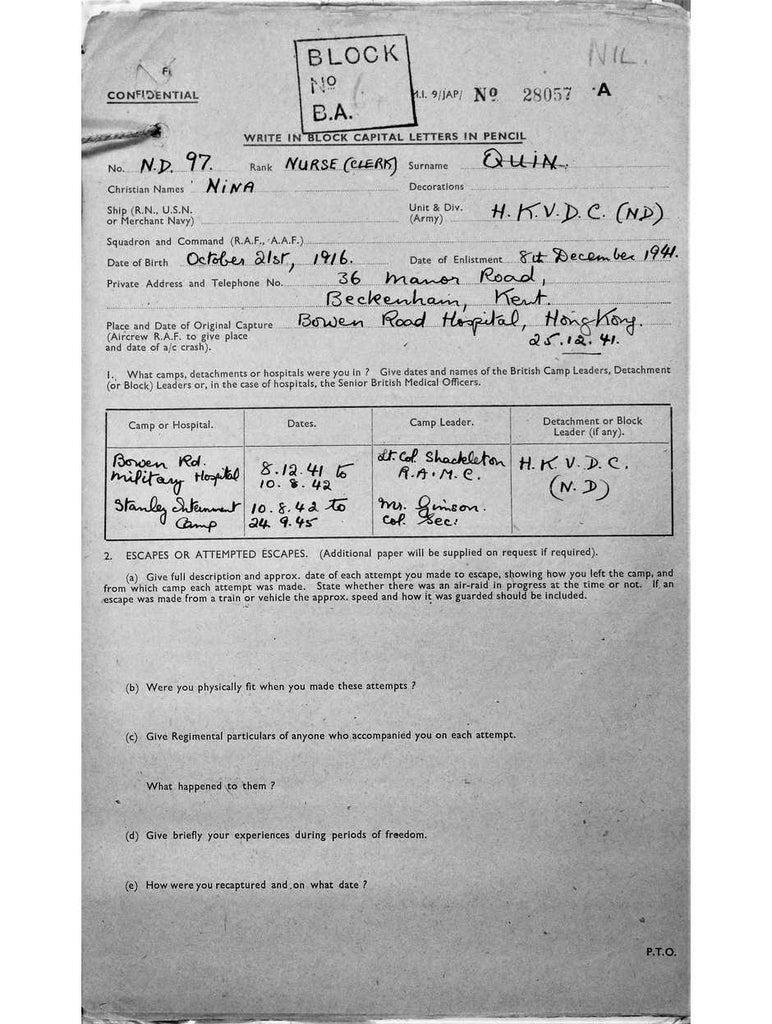 NIL.
BLOCK
No
B.A.
CONFIDENTIAL
M.I. 9/JAP/ No 28057 A
WRITE IN BLOCK CAPITAL LETTERS IN PENCIL
No. N.D. 97. Rank NURSE (CLERK) Surname QUIN.
Christian Names NINA Decorations
Ship (R.N., U.S.N. or Merchant Navy) Unit & Div. (Army) H.K.V.D.C. (ND)
Squadron and Command (R.A.F., A.A.F.)
Date of Birth October 21st, 1916. Date of Enlistment 8th December 1941.
Private Address and Telephone No. 36 Manor Road,
Beckenham, Kent.
Place and Date of Original Capture Bowen Road Hospital, HongKong.
(Aircrew R.A.F. to give place
and date of a/c crash). 25.12.41.
1. What camps, detachments or hospitals were you in ? Give dates and names of the British Camp Leaders, Detachment
(or Block) Leaders or, in the case of hospitals, the Senior British Medical Officers.
Camp or Hospital. Dates. Camp Leader. Detachment or Block Leader (if any).
Bowen Rd. Military Hospital 8.12.41 to 10.8.42 Lt. Col. Shackleton R.A.M.C. H.K.V.D.C. (N.D)
Stanley Internment Camp 10.8.42 to 24.9.45 Mr. Gimson. Col. Sec:
2. ESCAPES OR ATTEMPTED ESCAPES. (Additional paper will be supplied on request if required).
(a) Give full description and approx. date of each attempt you made to escape, showing how you left the camp, and
from which camp each attempt was made. State whether there was an air-raid in progress at the time or not. If an
escape was made from a train or vehicle the approx. speed and how it was guarded should be included.
(b) Were you physically fit when you made these attempts ?
(c) Give Regimental particulars of anyone who accompanied you on each attempt.
What happened to them ?
(d) Give briefly your experiences during periods of freedom.
(e) How were you recaptured and on what date ?
P.T.O.